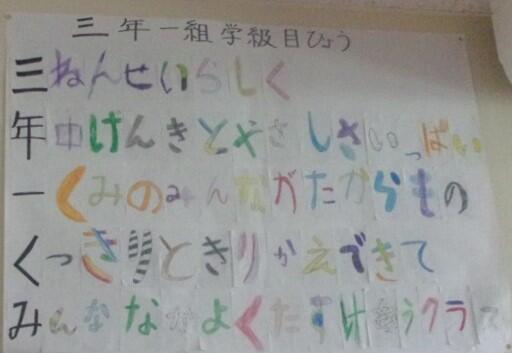 三年一組学級目ひょう
三ねんせいらしく
年中げんきとやさしさいっぱい
一くみのみんながたからもの
くっきりときりかえできて
みんななかよくたすけ合うクラス